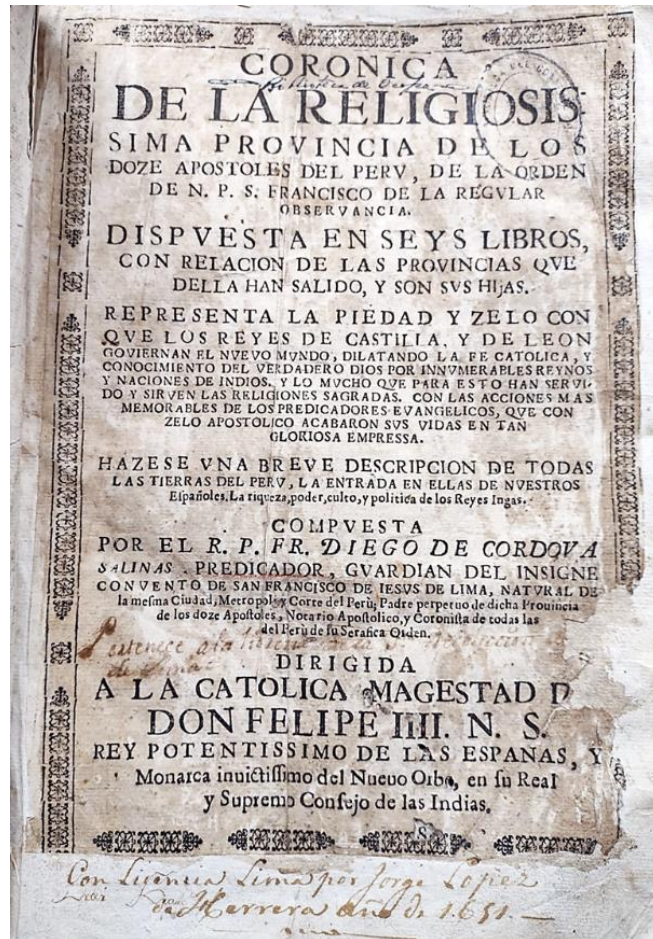 CORONICA
Bibliotheca de Ocopa
DE LA RELIGIOSIS
SIMA PROVINCIA DE LOS
DOZE APOSTOLES DEL PERV, DE LA ORDEN
DE N. P. S. FRANCISCO DE LA REGVLAR
OBSERVANCIA.
DISPVESTA EN SEYS LIBROS,
CON RELACION DE LAS PROVINCIAS QVE
DELLA HAN SALIDO, Y SON SVS HIJAS.
REPRESENTA LA PIEDAD Y ZELO CON
QVE LOS REYES DE CASTILLA, Y DE LEON
GOVIERNAN EL NVEVO MVNDO, DILATANDO LA FE CATOLICA, Y
CONOCIMIENTO DEL VERDADERO DIOS POR INNVMERABLES REYNOS
Y NACIONES DE INDIOS. Y LO MVCHO QVE PARA ESTO HAN SERVI-
DO Y SIRVEN LAS RELIGIONES SAGRADAS. CON LAS ACCIONES MAS
MEMORABLES DE LOS PREDICADORES EVANGELICOS, QVE CON
ZELO APOSTOLICO ACABARON SVS VIDAS EN TAN
GLORIOSA EMPRESSA.
HAZESE VNA BREVE DESCRIPCION DE TODAS
LAS TIERRAS DEL PERV, LA ENTRADA EN ELLAS DE NVESTROS
Españoles. La riqueza, poder, culto, y politica de los Reyes Ingas.
COMPVESTA
POR EL R. P. FR. DIEGO DE CORDOVA
SALINAS. PREDICADOR, GVARDIAN DEL INSIGNE
CONVENTO DE SAN FRANCISCO DE IESVS DE LIMA, NATVRAL DE
la mesma Ciudad, Metropol, y Corte del Perù; Padre perpetuo de dicha Provincia
de los doze Apostoles, Notario Apostolico, y Coronista de todas las
del Perù de su Serafica Orden.
Pertenece a la
de Lima
DIRIGIDA
A LA CATOLICA MAGESTAD D
DON FELIPE IIII. N. S.
REY POTENTISSIMO DE LAS ESPAÑAS, Y
Monarca invictissimo del Nuevo Orbe, en su Real
y Supremo Consejo de las Indias.
Con Licencia Lima por Jorge Lopez
de Herrera año de 1651.